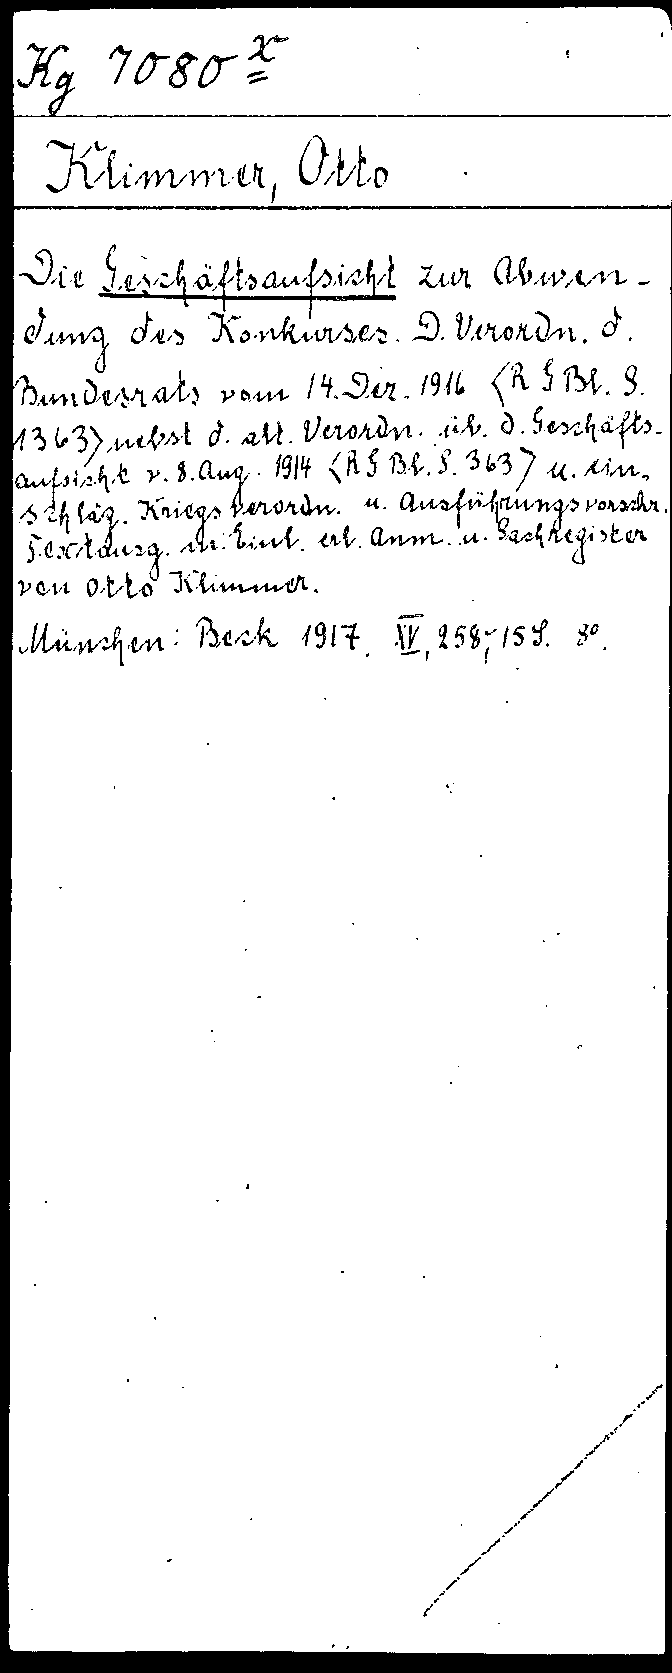 Kg 7080 x
Klimmer, Otto
Die Geschäftsaufsicht zur Abwen-
dung des Konkurses. D. Verordn. d.
Bundesrats vom 14. Dez. 1916 <R G Bl. S.
1363> nebst d. alt. Verordn. üb. d. Geschäfts-
aufsicht v. 8. Aug. 1914 <R G Bl. S. 363> u. ein-
schläg. Kriegsverordn. u. Ausführungsvorschr.
Textausg. m. Einl. erl. Anm. u. Sachregister
von Otto Klimmer.
München: Beck 1917. XV, 258, 15 S. 8°.